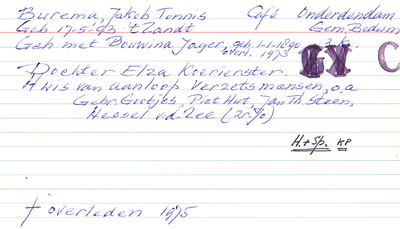 Burema, Jakob Tonnis Café Onderdendam
Geb. 17-5-'93 't Zandt Gem. Bedum
Geh met Bouwina Jager, geb. 1-1-1890
overl. 1973
Dochter Elza Koerierster.
Huis van aanloop verzetsmensen, o.a
Gebr. Gortjes, Piet Hut, Jan Th. Steen,
Hessel v.d. Zee (Zn.%)
H.+Sp. KP
† overleden 1975